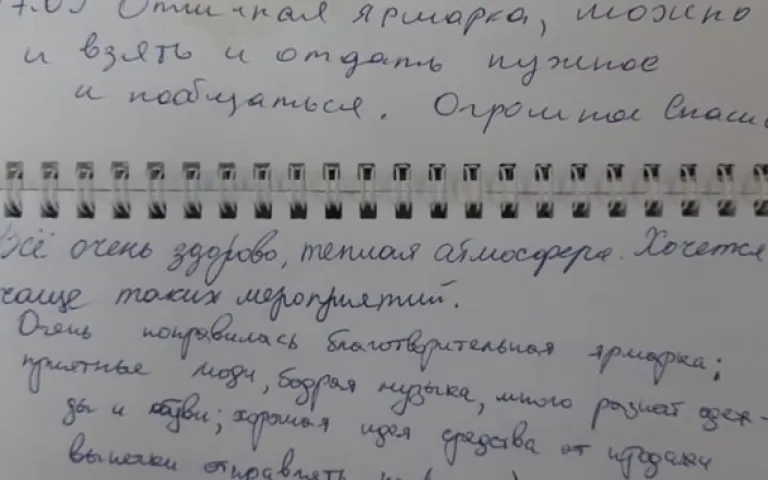 7.09 Отличная ярмарка, можно
и взять и отдать нужное
и пообщаться. Огромное Спаси
Всё очень здорово, теплая атмосфера. Хочется
чаще таких мероприятий.
Очень понравилась благотворительная ярмарка;
приятные люди, бодрая музыка, много разной одеж-
ды и обуви; хорошая идея средства от продажи
выпечки отправлять